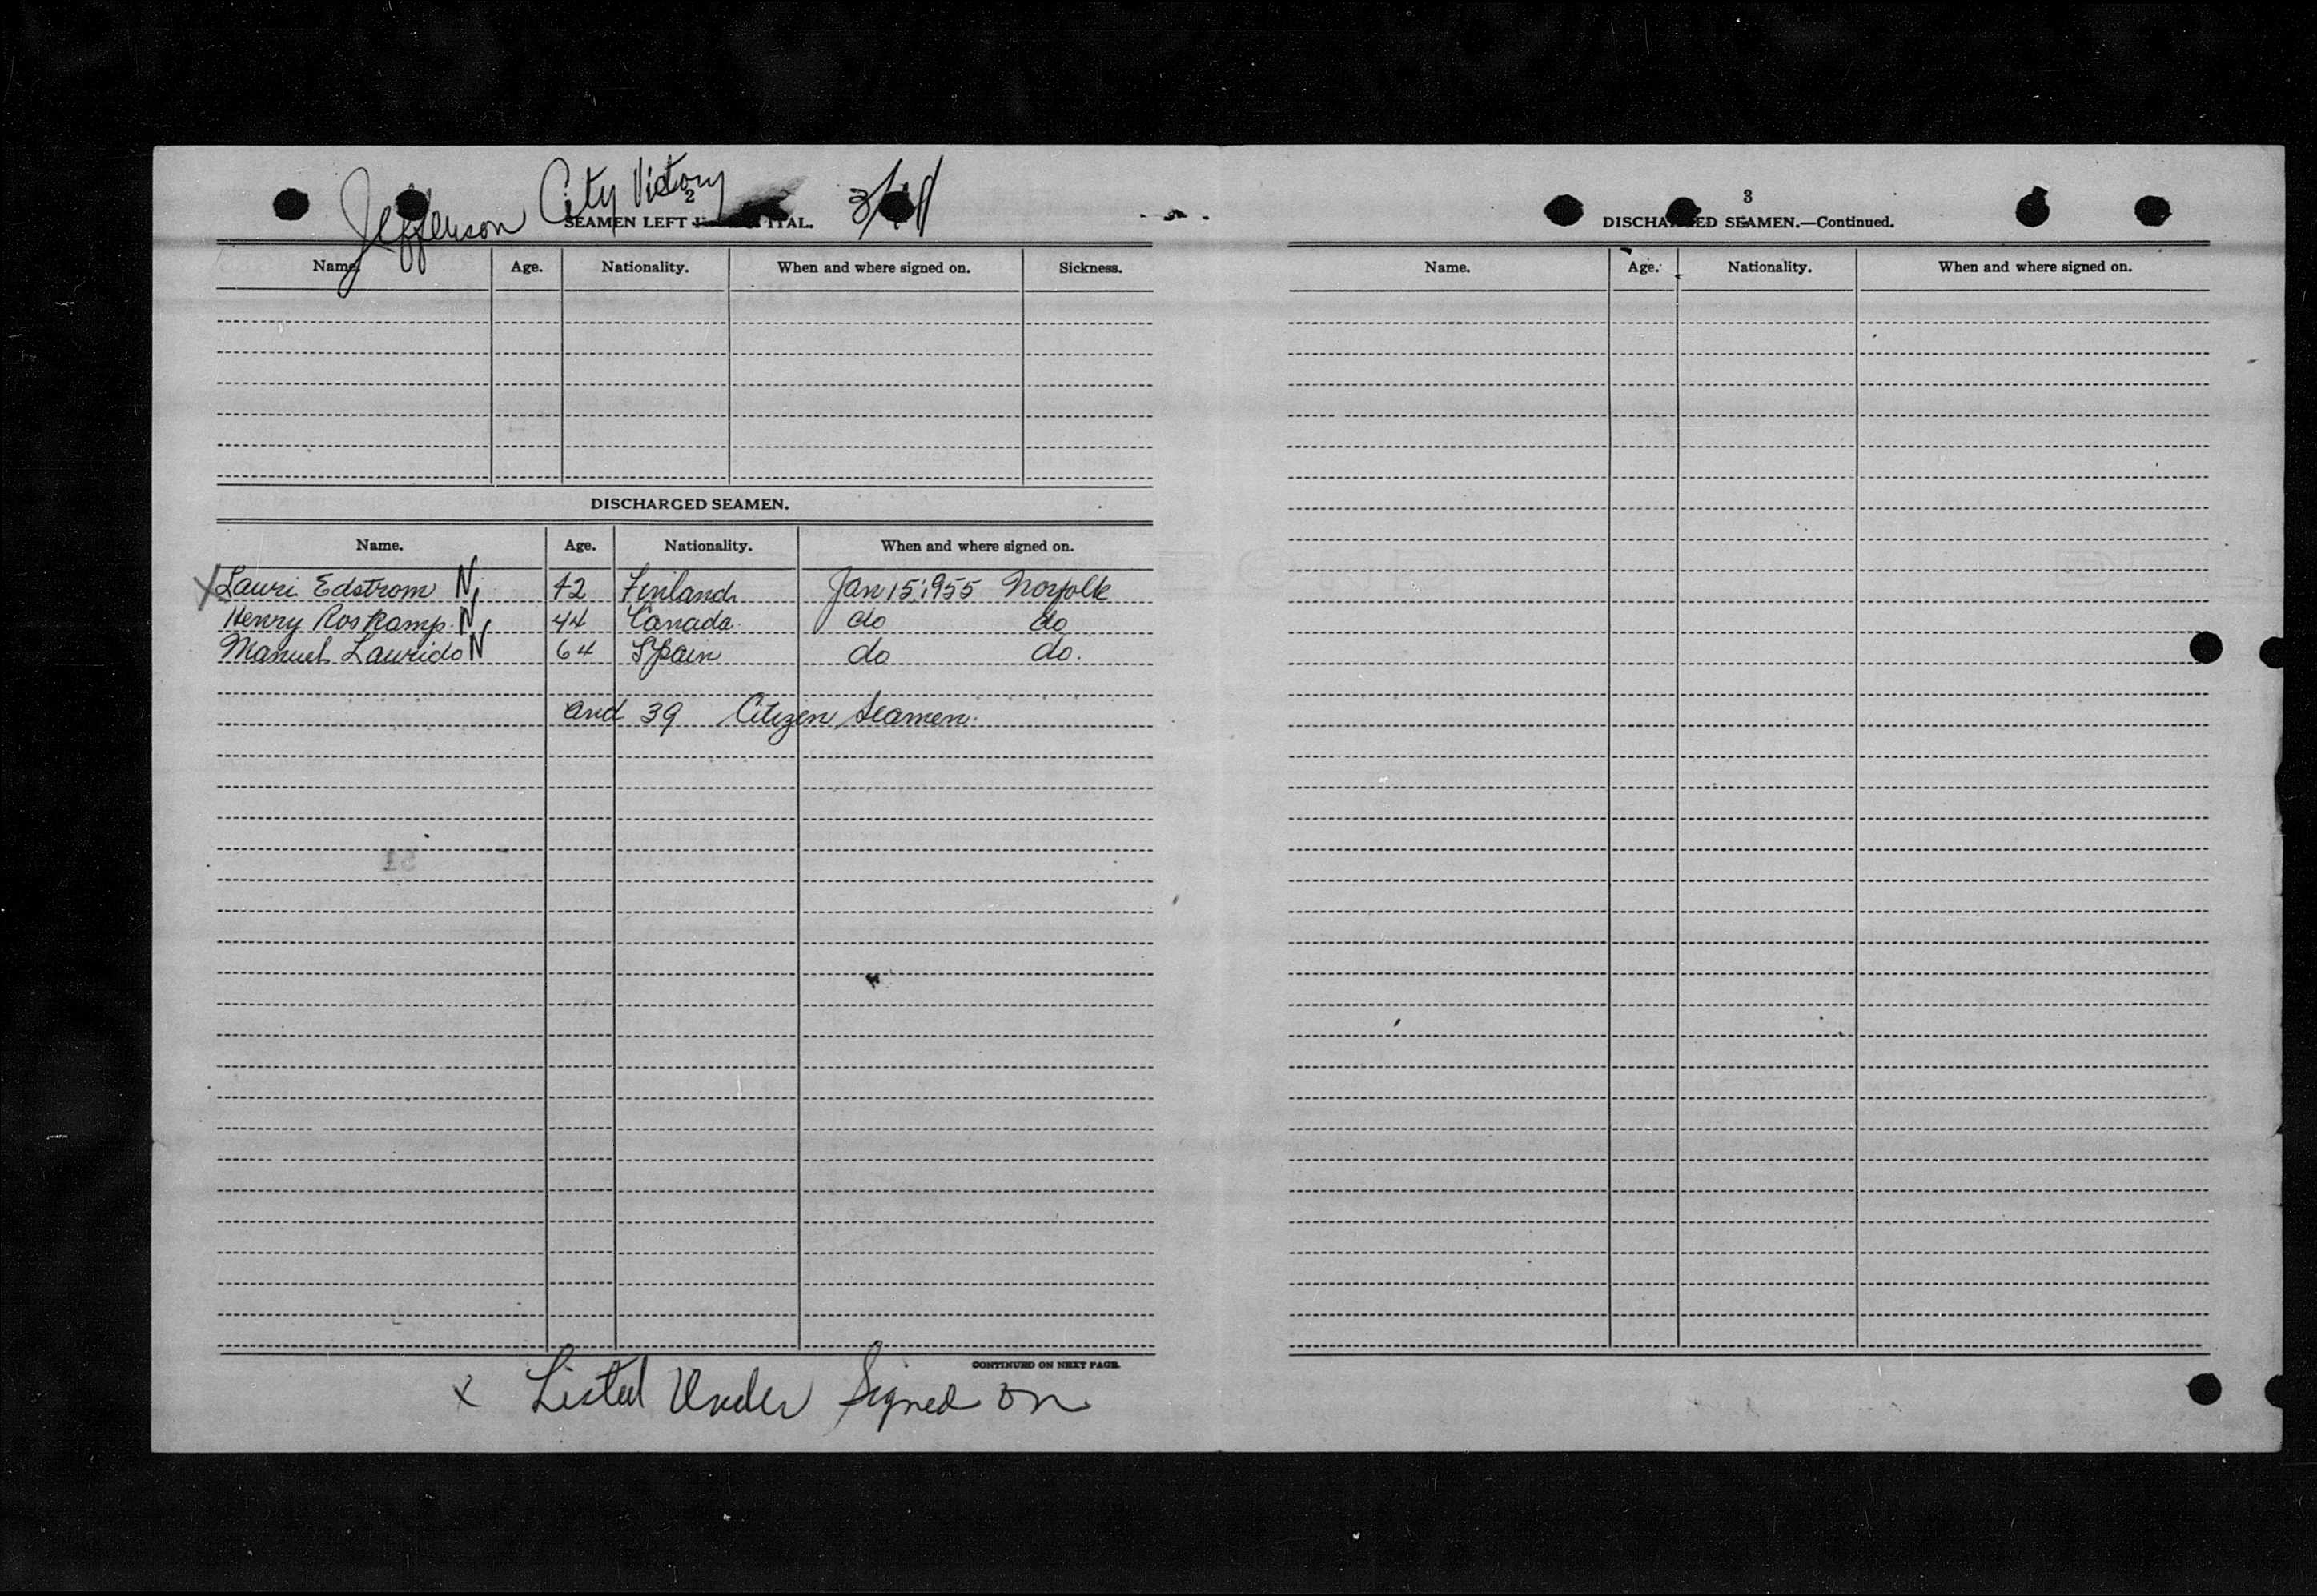 Jefferson City Victory
2
SEAMEN LEFT
Name. Age. Nationality. When and where signed on. Sickness.
DISCHARGED SEAMEN.
Name. Age. Nationality. When and where signed on.
X Lauri Edstrom N, 42 Finland Jan 15, 1955 Norfolk
Henry Roskamp N, 44 Canada do do
Manuel Laurido N 64 Spain do do.
and 39 Citizen Seamen.
CONTINUED ON NEXT PAGE.
x Listed Under Signed on
3
DISCHARGED SEAMEN.—Continued.
Name. Age. Nationality. When and where signed on.